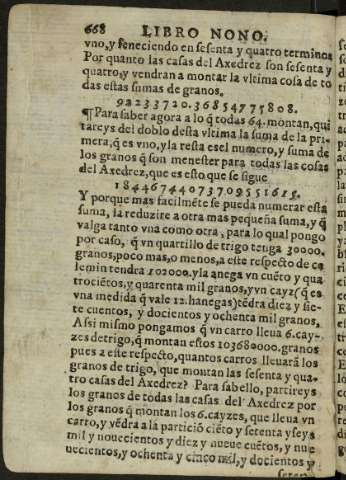 668 LIBRO NONO.
vno, y feneciendo en sesenta y quatro terminos
Por quanto las casas del Axedrez son sesenta y
quatro, y vendran a montar la vltima cosa de to
das estas sumas de granos.
92233720.36854775808.
¶Para saber agora a lo q̃ todas 64. montan, qui
tareys del doblo desta vltima la suma de la pri-
mera; q̃ es vno, y la resta es el numero, y suma de
los granos q̃ son menester para todas las cosas
del Axedrez, que es esto que se sigue.
18446744073709551615.
Y porque mas facilmẽte se pueda numerar esta
suma, la reduzire a otra mas pequeña suma, y q̃
valga tanto vna como otra, para lo qual pongo
por caso, q̃ vn quartillo de trigo tenga 30000.
granos, poco mas, o menos, a este respecto de ce
lemin tendra 102000. y la anega vn cuẽto y qua
trociẽtos, y quarenta mil granos, y vn cayz (q̃ es
vna medida q̃ vale 12. hanegas) tẽdra diez y sie-
te cuentos, y docientos y ochenta mil granos,
Assi mismo pongamos q̃ vn carro lleua 6. cay-
zes de trigo, q̃ montan estos 103680000. granos
pues a este respecto, quantos carros lleuarã los
granos de trigo, que montan las sesenta y qua-
tro casas del Axedrez? Para sabello, partireys
los granos de todas las casas del Axedrez por
los granos q̃ montan los 6. cayzes, que lleua vn
carro, y vẽdra a la particiõ ciẽto y setenta y seys
mil y nouecientos y diez y nueue cuẽtos, y nue
uecientos, y ochenta y cinco mil, y docientos y